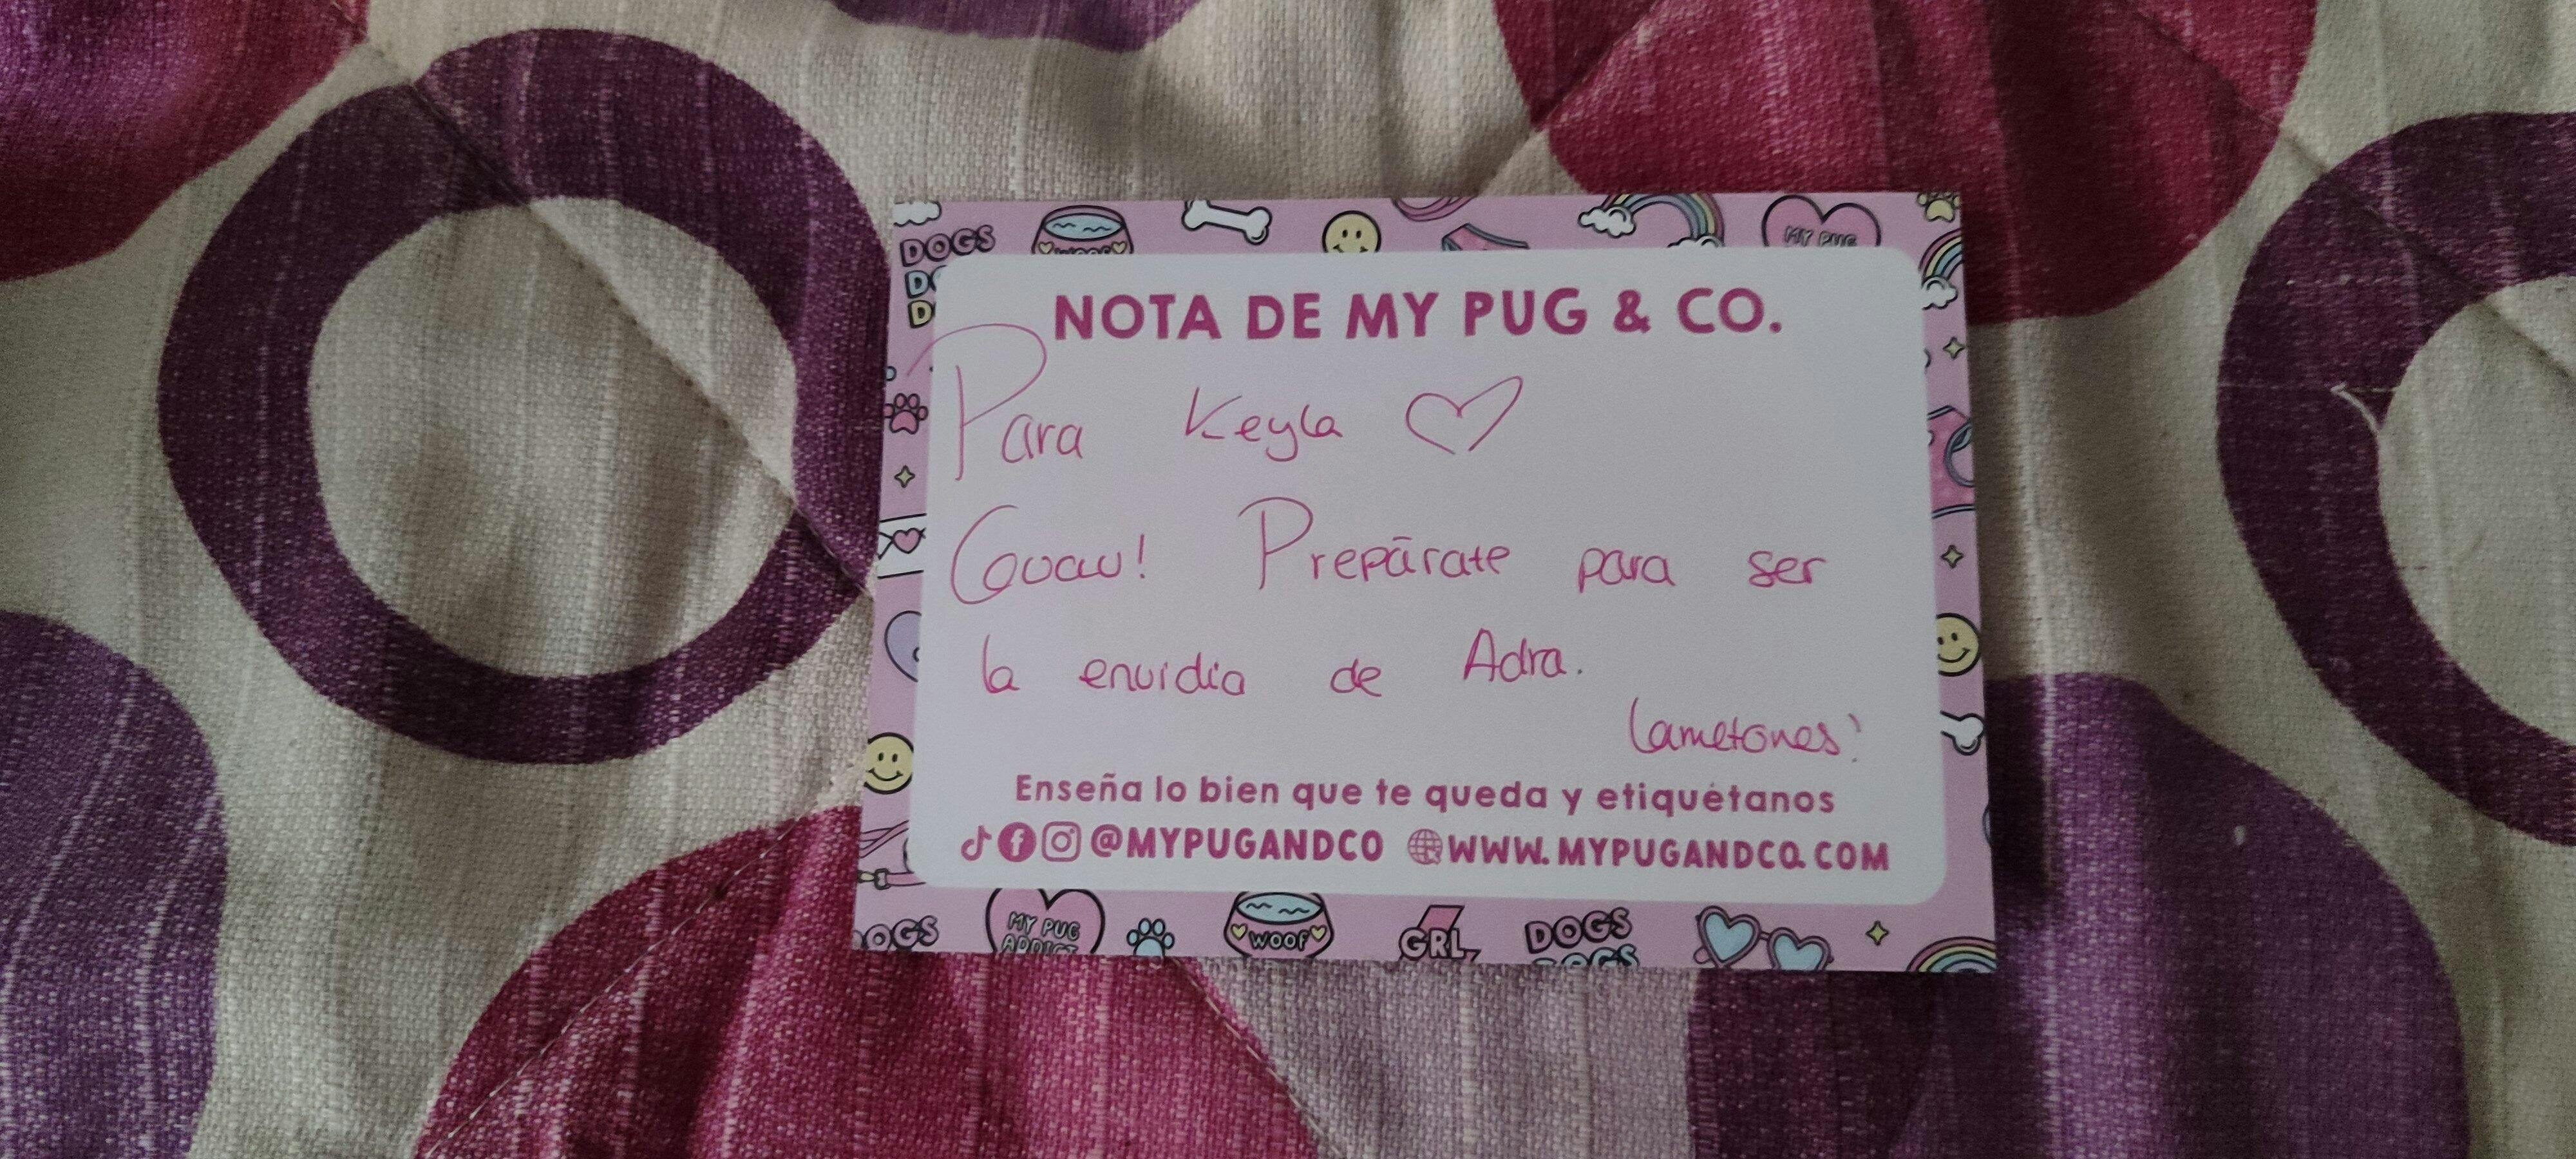 DOGS
WOOF
MY PUG
NOTA DE MY PUG & CO.
Para Keyla
Guau! Prepárate para ser
la envidia de Adra.
Lametones!
Enseña lo bien que te queda y etiquétanos
@MYPUGANDCO WWW.MYPUGANDCO.COM
DOGS
MY PUG
ADDICT
WOOF
GRL
DOGS
DOGS